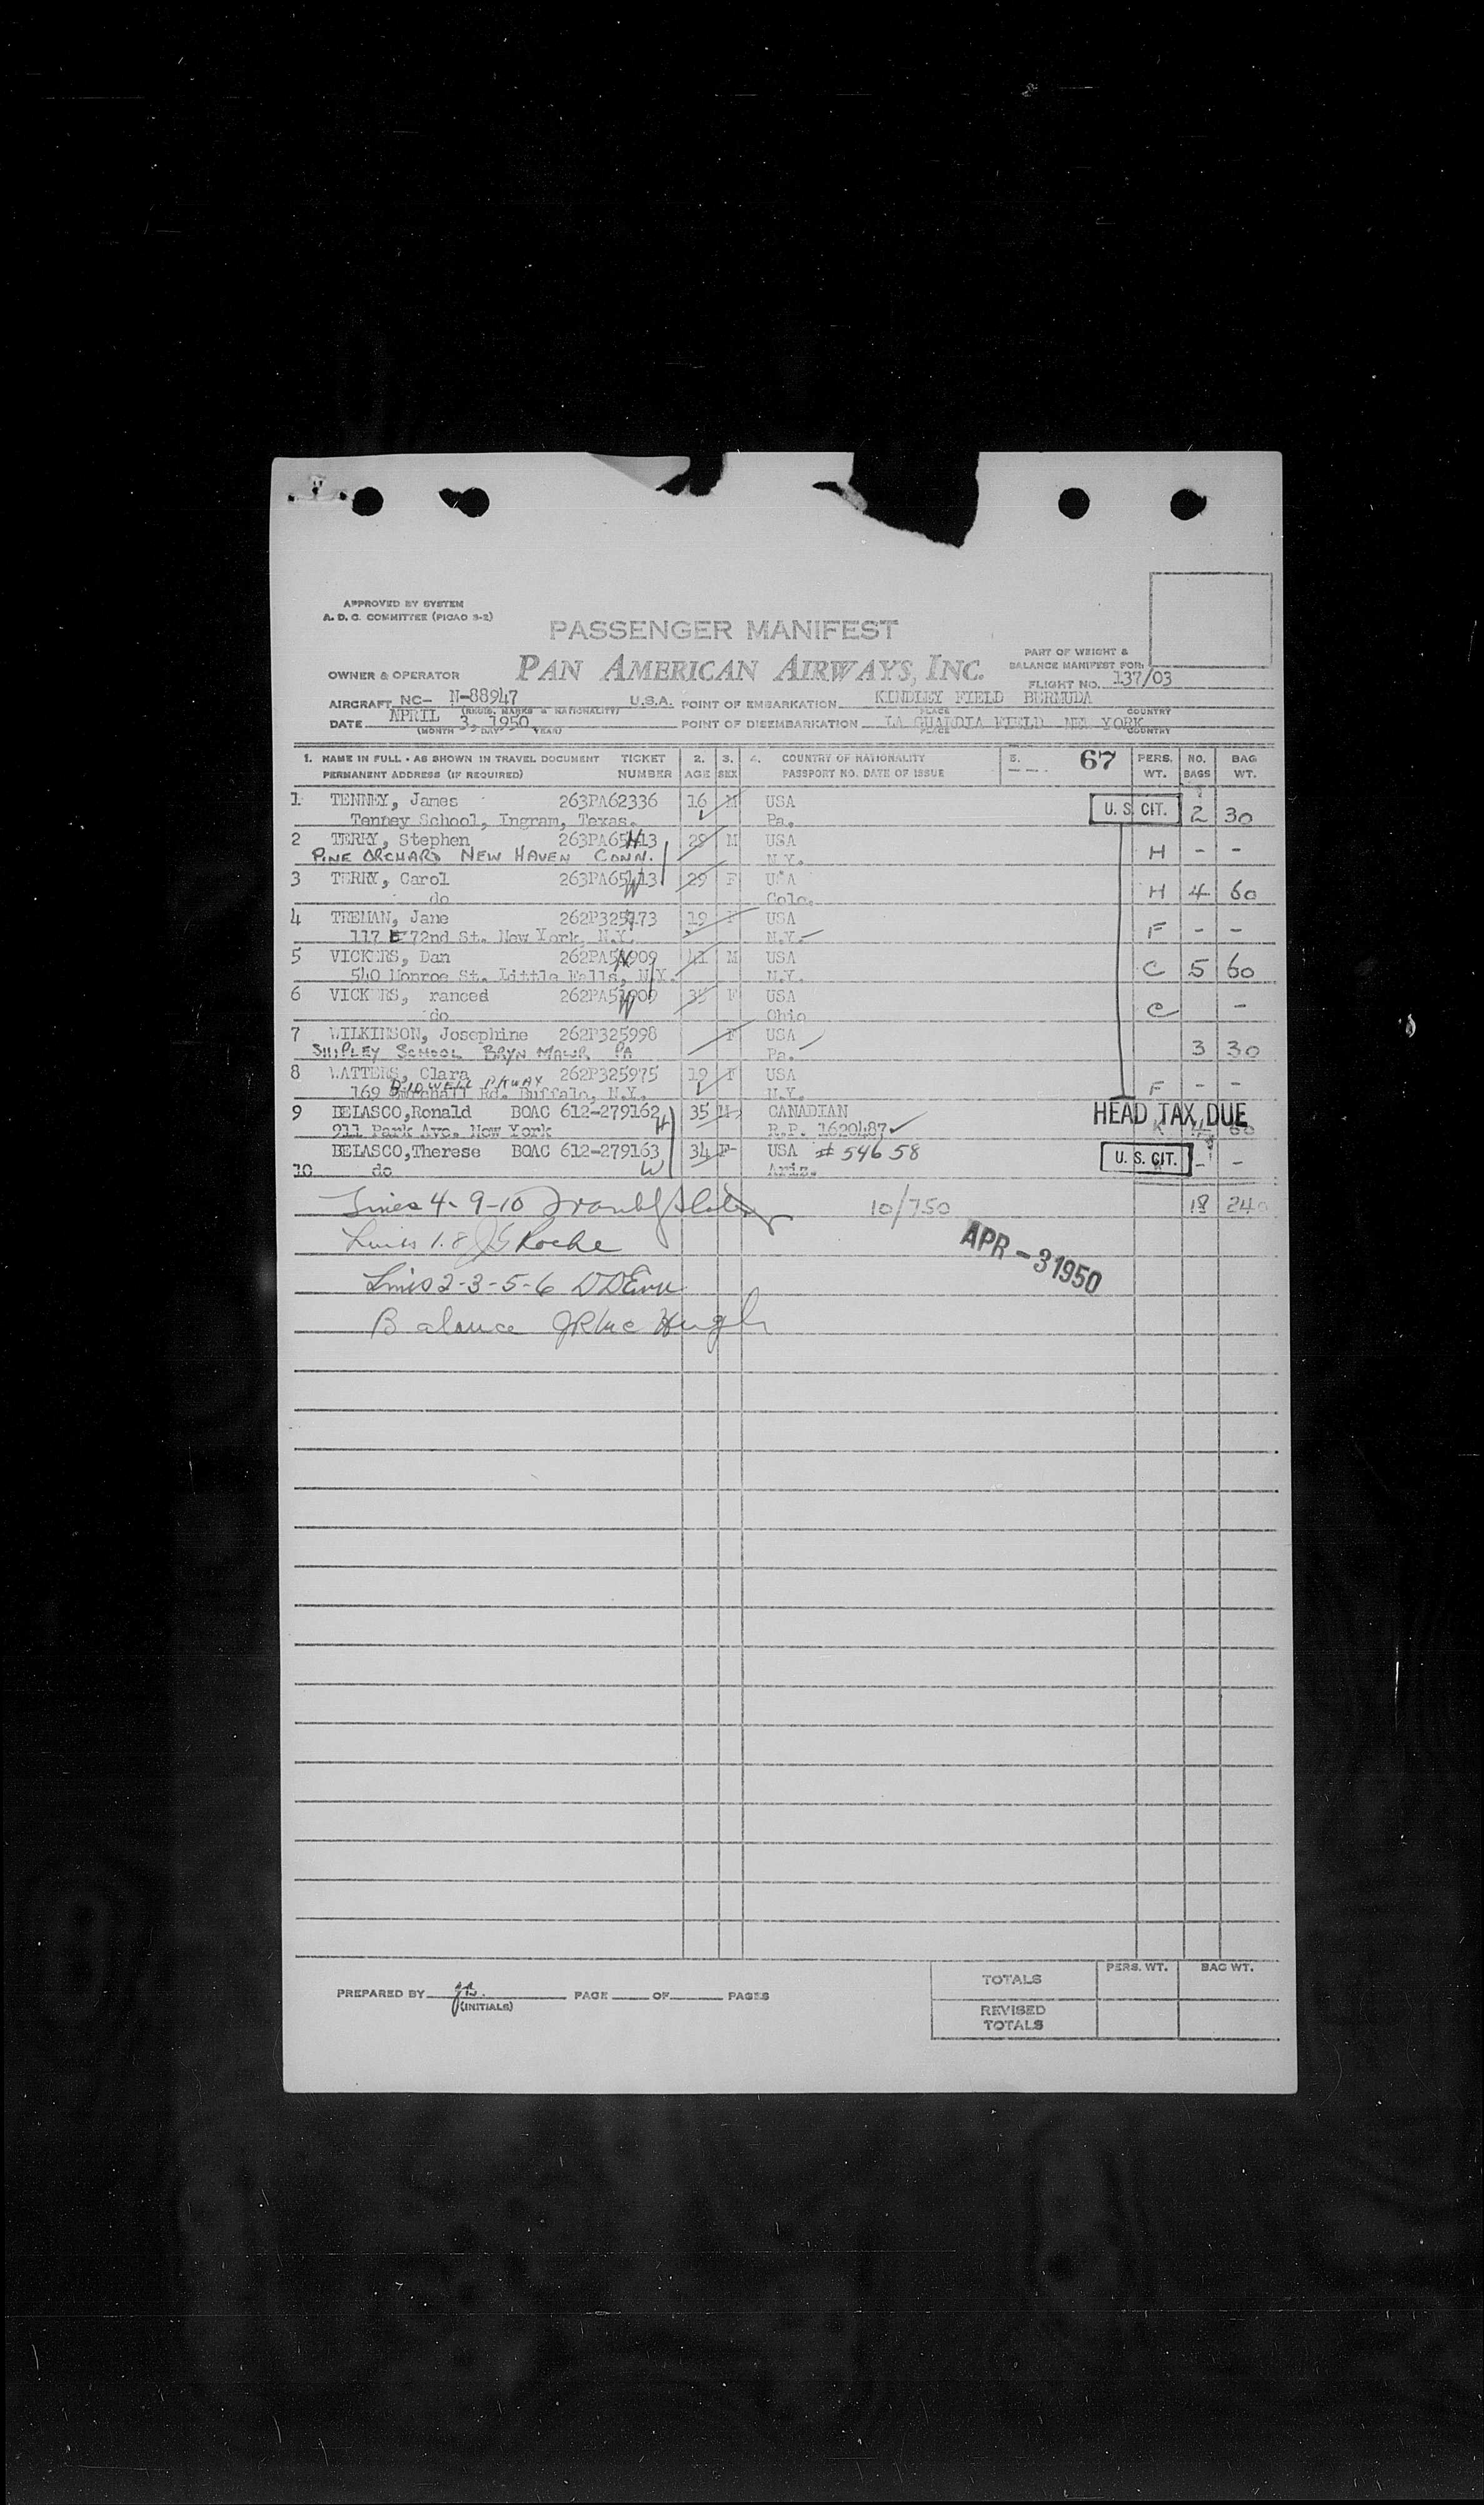 APPROVED BY SYSTEM
A. D. C. COMMITTEE (PICAO 3-2)
PASSENGER MANIFEST
OWNER & OPERATOR PAN AMERICAN AIRWAYS, INC.
PART OF WEIGHT &
BALANCE MANIFEST FOR:
FLIGHT NO. 137/03
AIRCRAFT NC- N-88947 U.S.A. POINT OF EMBARKATION KINDLEY FIELD BERMUDA
(REGIS. MARKS & NATIONALITY) PLACE COUNTRY
DATE APRIL 3, 1950 POINT OF DISEMBARKATION LA GUARDIA FIELD NEW YORK
(MONTH DAY YEAR) PLACE COUNTRY
1. NAME IN FULL - AS SHOWN IN TRAVEL DOCUMENT TICKET 2. 3. 4. COUNTRY OF NATIONALITY 5. 67 PERS. NO. BAG
PERMANENT ADDRESS (IF REQUIRED) NUMBER AGE SEX PASSPORT NO. DATE OF ISSUE WT. BAGS WT.
1 TENNEY, James 263PA62336 16 M USA U. S. CIT. 2 30
Tenney School, Ingram, Texas. Pa.
2 TERRY, Stephen 263PA65413 H 29 M USA
PINE ORCHARD NEW HAVEN CONN. N.Y. H - -
3 TERRY, Carol 263PA65413 W 29 F USA
do Colo. H 4 60
4 TREMAN, Jane 262P325773 19 F USA
117 E 72nd St. New York, N.Y. N.Y. F - -
5 VICKERS, Dan 262PA51909 H 41 M USA
540 Monroe St. Little Falls, N.Y. N.Y. C 5 60
6 VICKERS, ranced 262PA51909 W 35 F USA
do Ohio C -
7 WILKINSON, Josephine 262P325998 F USA
SHIPLEY SCHOOL BRYN MAWR PA Pa. 3 30
8 WATTERS, Clara 262P325975 19 F USA
BIDWELL PKWAY
169 Rd. Buffalo, N.Y. N.Y. F - -
9 BELASCO,Ronald BOAC 612-279162 H 35 M CANADIAN HEAD TAX DUE
911 Park Ave. New York R.P. 1620487 K 4 60
BELASCO,Therese BOAC 612-279163 34 F USA # 54658 U. S. CIT. - -
10 do W Ariz.
Lines 4-9-10 10/750 18 240
Lines 1.8 JG Roche
APR - 3 1950
Lines 2-3-5-6
Balance JR McHugh
PREPARED BY (INITIALS) PAGE OF PAGES
PERS. WT. BAG WT.
TOTALS
REVISED
TOTALS